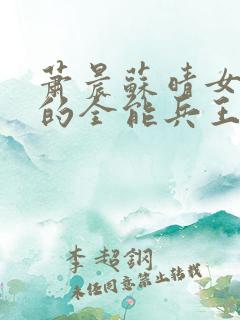 萧晨蘇晴女
的全能兵王
李超鋼
未任同意禁止转载